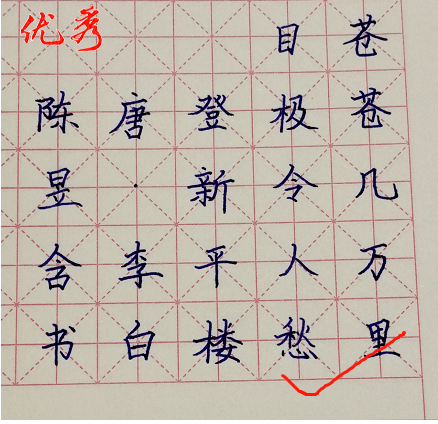 优秀
苍苍几万里
目极令人愁
登新平楼
唐·李白
陈昱含书